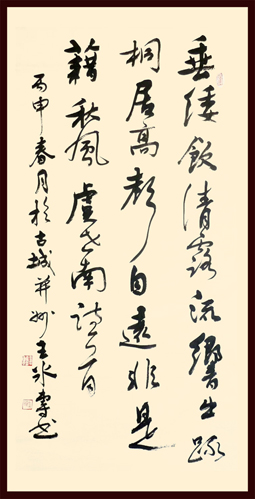 垂緌飲清露流響出踈
桐居高聲自遠非是
藉秋風虞世南詩一首
丙申春月於古城并州王冰書